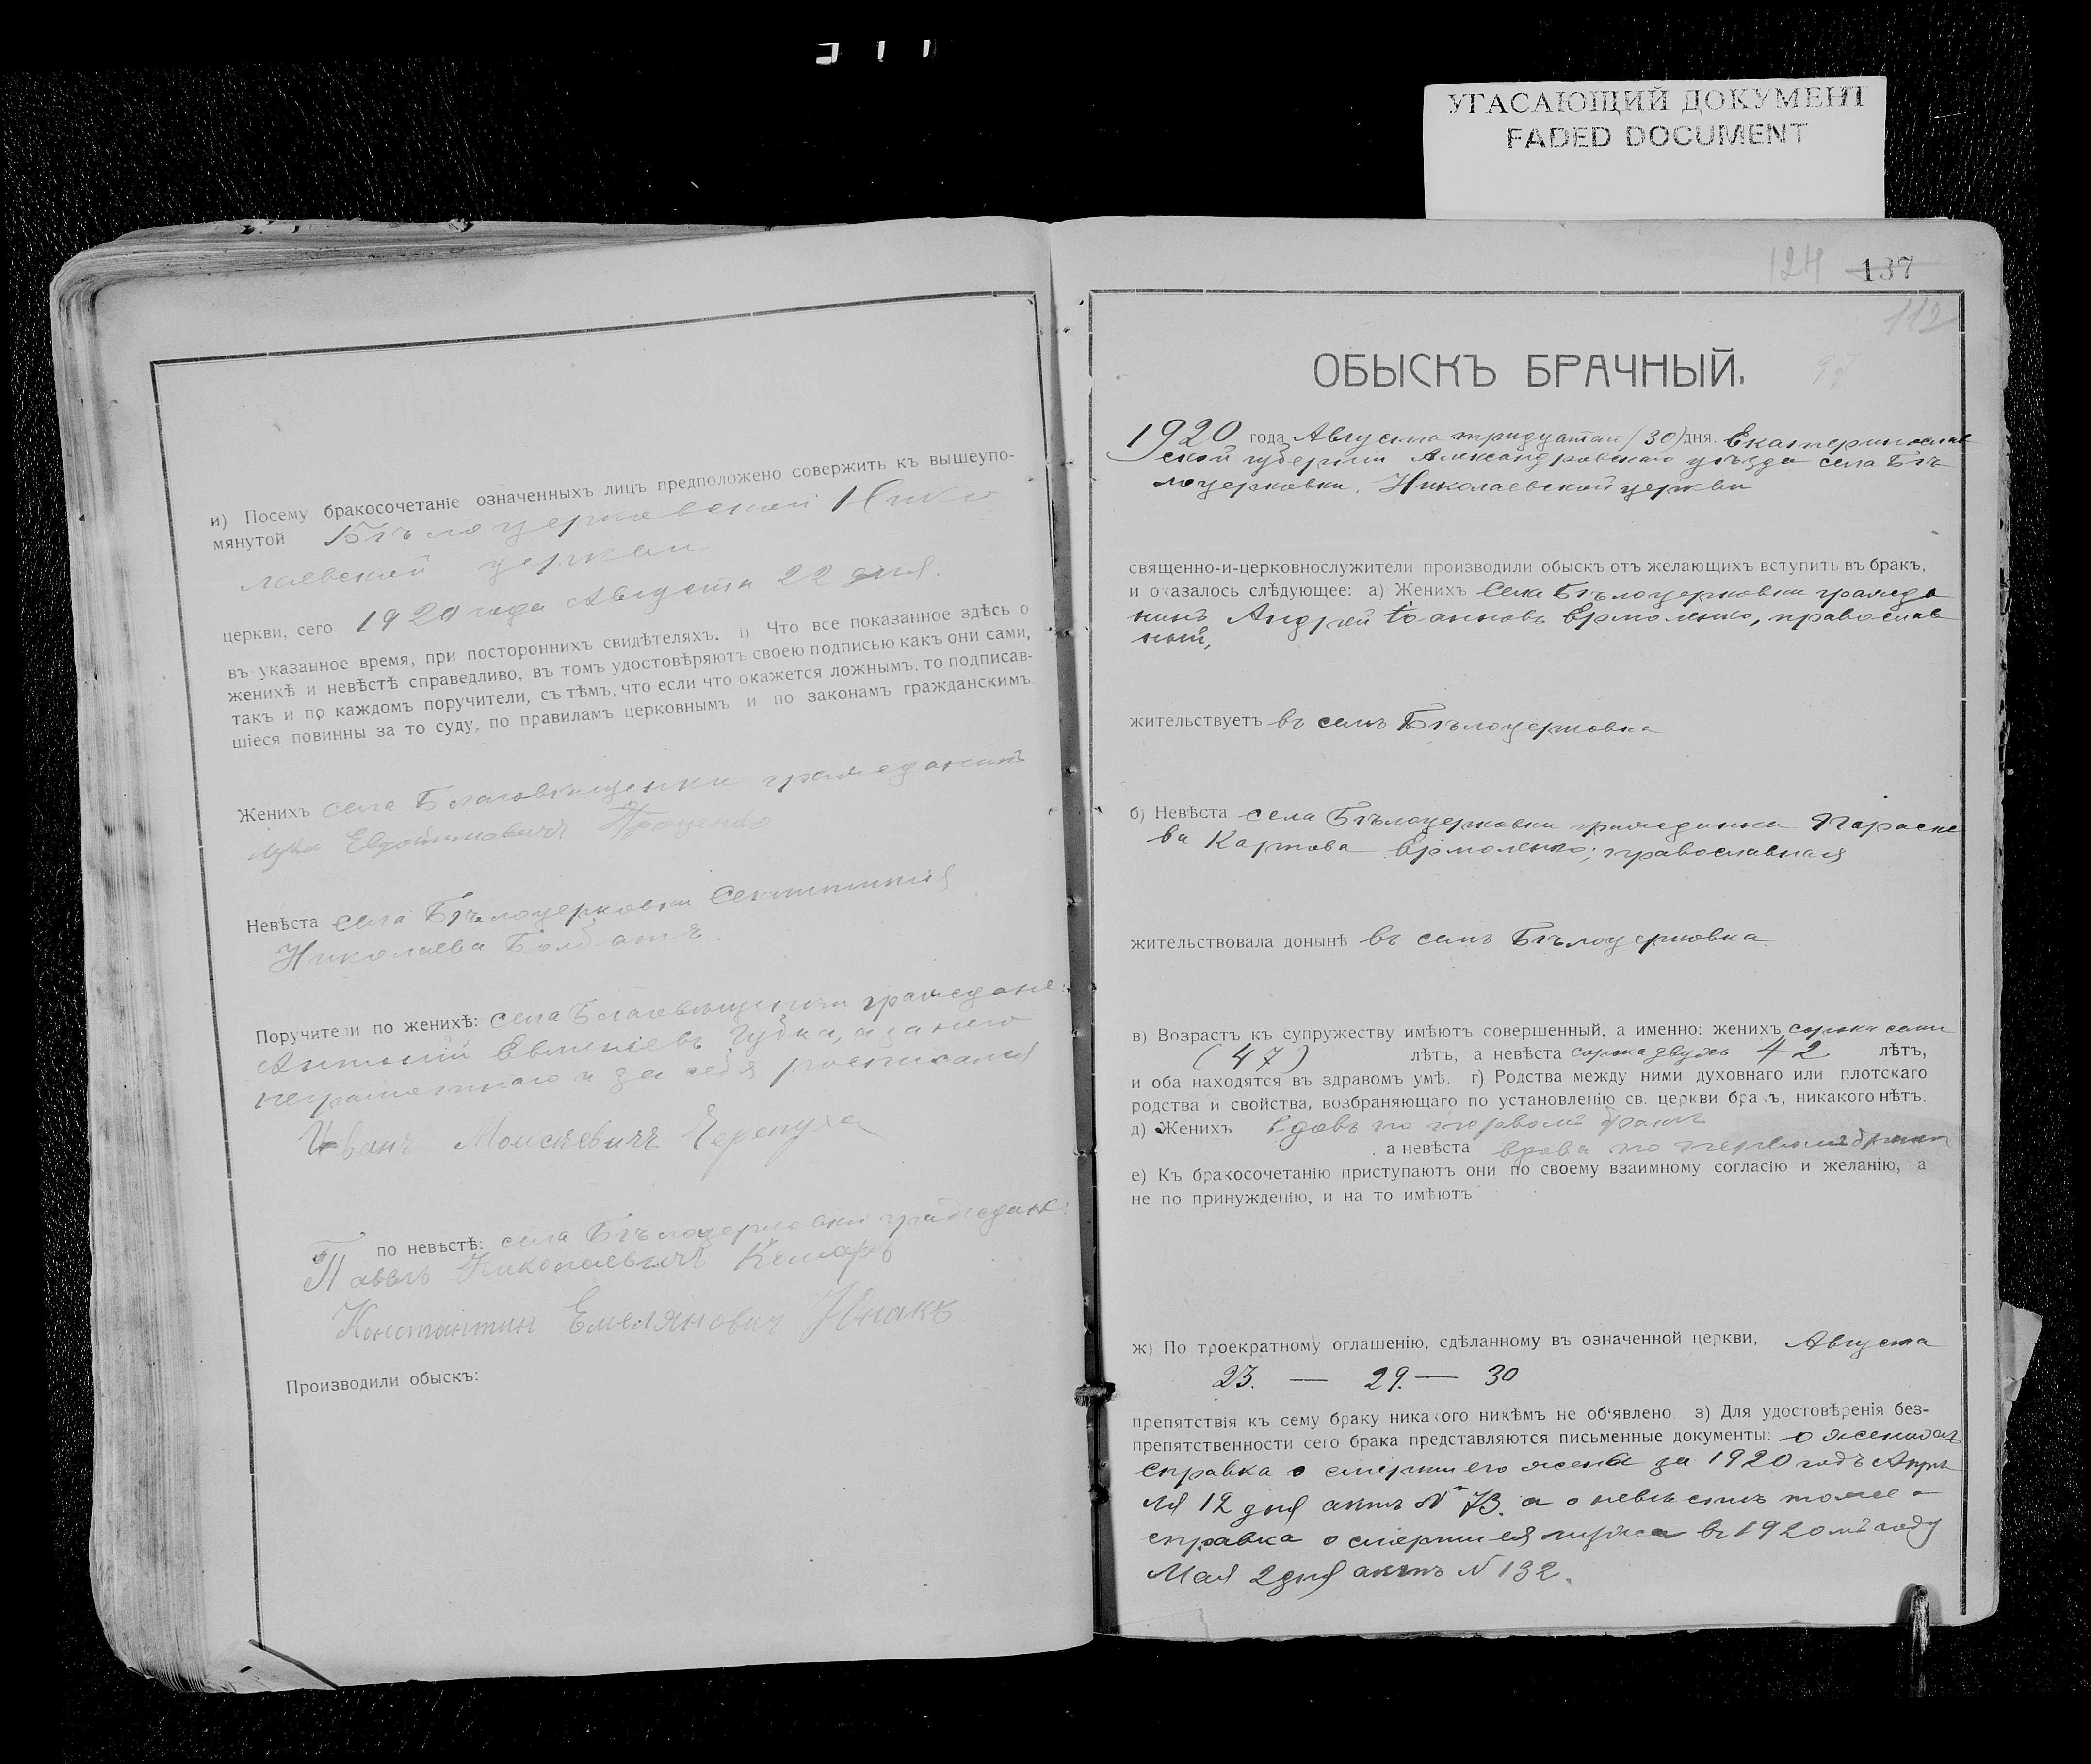 УГАСАЮЩИЙ ДОКУМЕНТ
FADED DOCUMENT
и) Посему бракосочетаніе означенныхъ лицъ предположено совержить къ вышеупо-
мянутой Бѣлоцерковской Нико
лаевской церкви
церкви, сего 1920 года Августа 22 дня.
въ указанное время, при постороннихъ свидѣтеляхъ. і) Что все показанное здѣсь о
женихѣ и невѣстѣ справедливо, въ томъ удостовѣряютъ своею подписью какъ они сами,
такъ и по каждомъ поручители, съ тѣмъ, что если что окажется ложнымъ, то подписав-
шіеся повинны за то суду, по правиламъ церковнымъ и по законамъ гражданскимъ.
Женихъ села Благовѣщенки гражданинъ
Евдокимовичъ Проценко
Невѣста села Бѣлоцерковки
Николаева
Поручители по женихѣ: села Благовѣщенки граждане:
Антоній Евменіевъ Губка, а за него
неграмотнаго и за себя росписался
Иванъ Моисѣевичъ Черепуха
по невѣстѣ: села Бѣлоцерковки граждане:
Павелъ Николаевичъ
Константин Емелянович
Производили обыскъ:
124 137
112
97
ОБЫСКЪ БРАЧНЫЙ.
1920 года Августа тридцатаго (30) дня. Екатеринослав
ской губерніи Александровскаго уѣзда села Бѣ
лоцерковки, Николаевской церкви
священно-и-церковнослужители производили обыскъ отъ желающихъ вступить въ бракъ,
и оказалось слѣдующее: а) Женихъ Села Бѣлоцерковки гражда
нинъ Андрей Іоанновъ Ермоленко, православ
ный,
жительствуетъ въ селѣ Бѣлоцерковка
б) Невѣста села Бѣлоцерковки гражданка Параске
ва Карпова Ермоленко; православная
жительствовала донынѣ въ селѣ Бѣлоцерковка
в) Возрастъ къ супружеству имѣютъ совершенный, а именно: женихъ сорока семи
(47) лѣтъ, а невѣста сорока двухъ 42 лѣтъ,
и оба находятся въ здравомъ умѣ. г) Родства между ними духовнаго или плотскаго
родства и свойства, возбраняющаго по установленію св. церкви бракъ, никакого нѣтъ.
д) Женихъ вдовъ по первомъ бракѣ
, а невѣста вдова по первомъ бракѣ
е) Къ бракосочетанію приступаютъ они по своему взаимному согласію и желанію, а
не по принужденію, и на то имѣютъ
ж) По троекратному оглашенію, сдѣланному въ означенной церкви, Августа
23. — 29. — 30
препятствія къ сему браку никакого никѣмъ не об'явлено з) Для удостовѣренія без-
препятственности сего брака представляются письменные документы: о женихѣ
справка о смерти его жены за 1920 годъ Апрѣ
ля 12 дня актъ № 73. а о невѣстѣ тоже
справка о смерти ея мужа въ 1920 мъ году
Мая 2 дня актъ № 132.